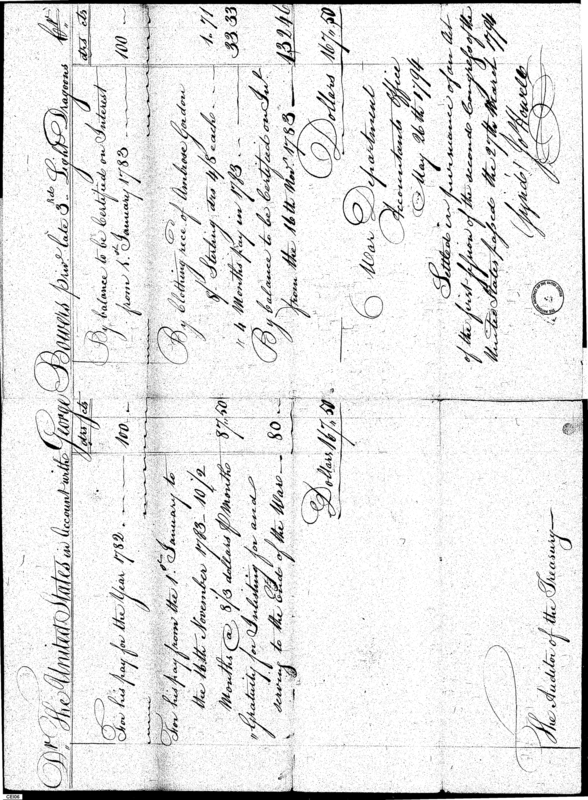 Dr. The United States in Account with George Bowers priv. late 3rd Light Dragoons Cr.
drs cts
For his pay for the Year 1782. 100.
For his pay from the 1st January to
the 16th November 1783 10 1/2
Months @ 8 1/3 dollars Months 87.50
Gratuity for Inlisting for and
serving to the End of the Ware 80
Dollars 167.50
The Auditor of the Treasury
drs cts
By balance to be Certified on Interest
from 1st January 1783 100
By Clothing rece of Ambrose Gordon
Sterling drs 4/8 each 1.71
" 4 Months pay in 1783 33 33
By balance to be Certified on Int
from the 16th Novr 1783 132 46
Dollars 167.50
War Department
Accountants Office
May 26th 1794
Settled in pursuance of an Act
of the first session of the second Congress of the
United States passed the 27th March 1794
Jo Howell
CE106